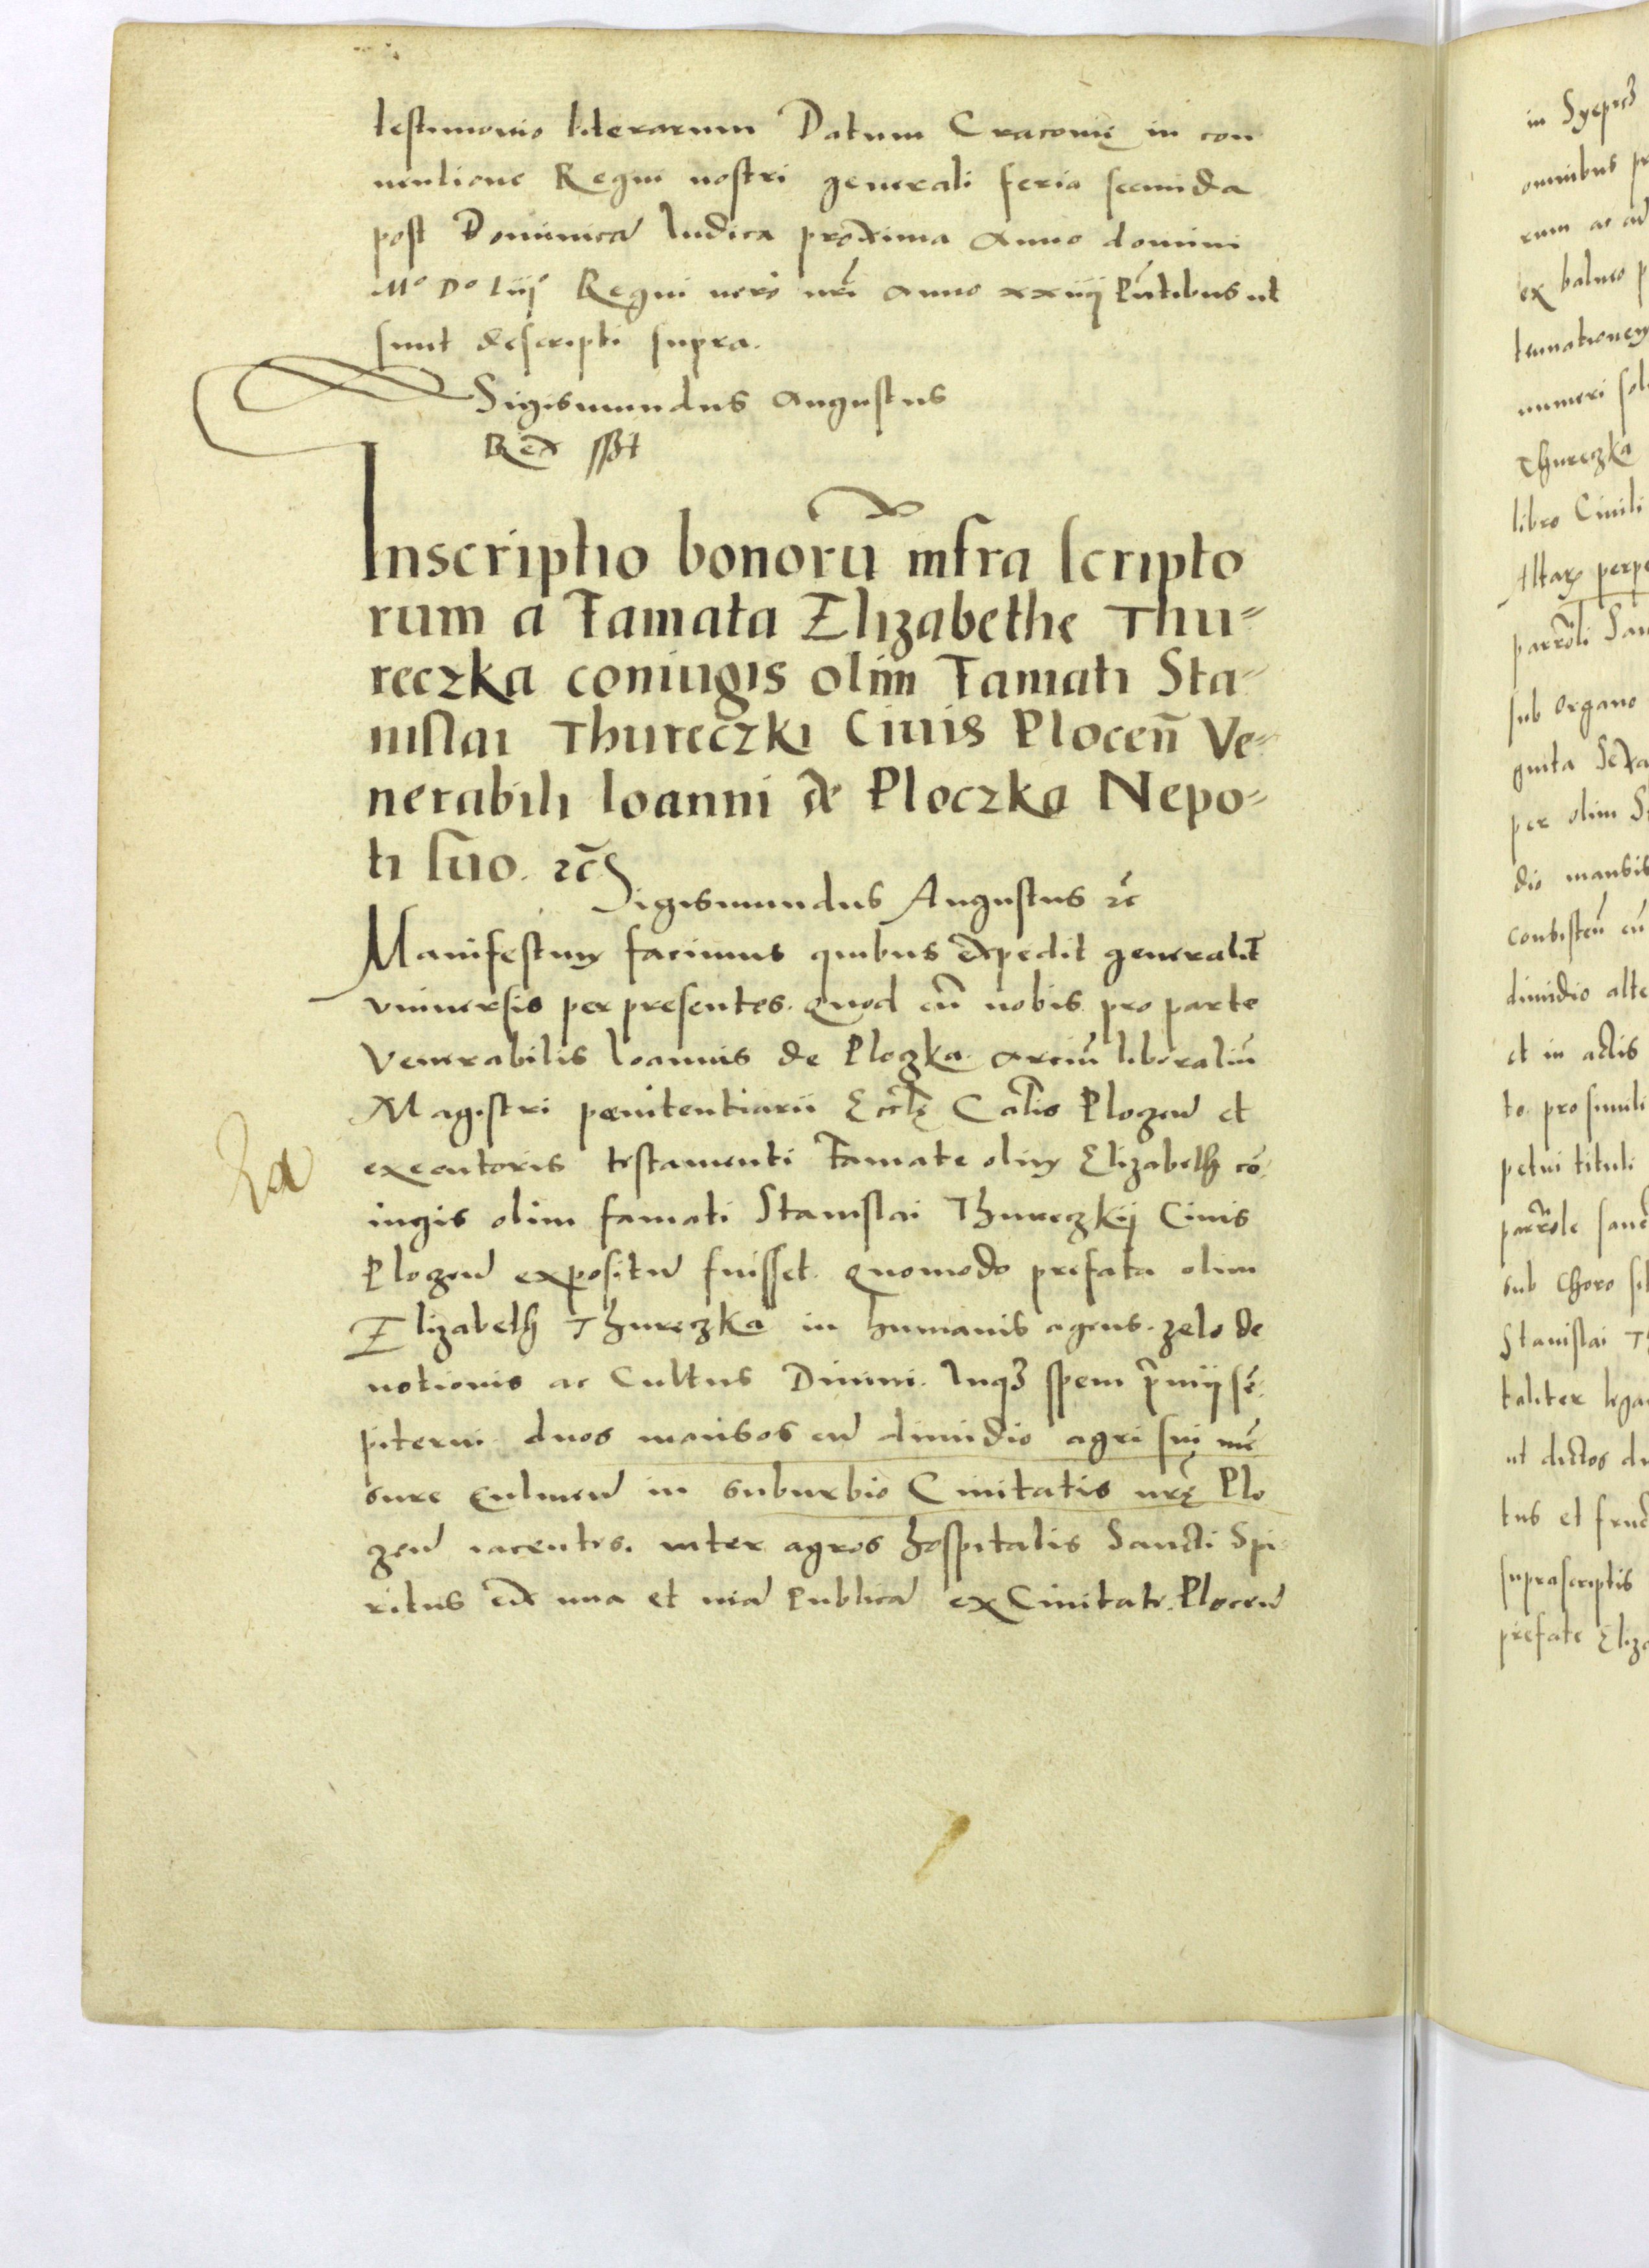 testimonio literarum Datum Cracovię in con
ventione Regni nostri generali feria secunda
post Dominicā Iudica proxima Anno domini
Mº Dº Liijº Regni vero nrī Anno xxiiij Pn̄tibus ut
sunt descripti supra.
Sigismundus Augustus
Rex sst
Inscriptio bonorū infra scripto
rum a Famata Elizabethe Thu-
reczka coniugis olim Famati Sta-
nislai Thureczki Civis Plocen̄ Ve-
nerabili Ioanni de Ploczka Nepo-
ti suo. ꝛc̄
Sigismundus Augustus ꝛc̄
Manifestum facimus quibus expedit generalit̄
universis per presentes. Quod cū nobis pro parte
Venerabilis Ioannis de Plozka. Arciū liberaliū
Magistri penitentiarii Eccl̄ę Catl̄is Plozen̄ et
executoris testamenti Famate olim Elizabeth cō-
iugis olim famati Stanislai Thureczkij Civis
Plozen̄ expositū fuisset. Quomodo prefata olim
Elizabeth Thureczka in humanis agens. zelo de
votionis ac Cultus Divini. Inqꝫ spem p̄mij sē-
piterni duos mansos cū dimidio agri sui mē
sure Culmen̄ in suburbio Civitatis nrę̄ Plo
zen̄ iacentes. inter agros hospitalis Sancti Spi-
ritus ex una et viā Publicā ex Civitate Plocen̄
in
omnibus
rum ac
ex balneo
numeri
Thureczka
libro Civili
Altar
sub organo
per olim
dimidio
et in actis
to. pro simili
petui tituli
sub Choro
Stanislai
taliter
ut dictos
tus et
suprascriptis
prefate